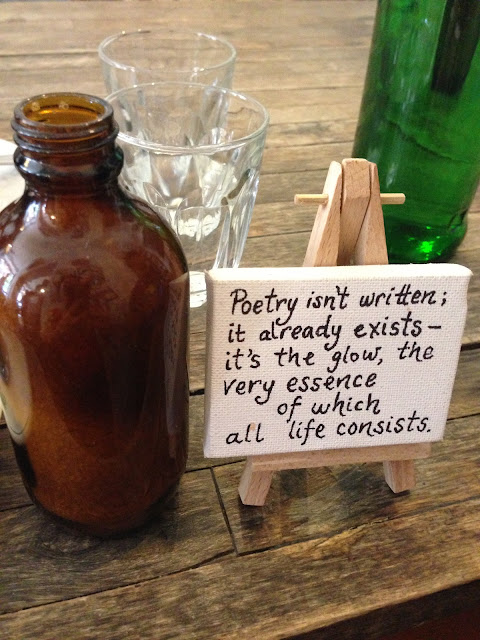 Poetry isn't written;
it already exists–
it's the glow, the
very essence
of which
all life consists.